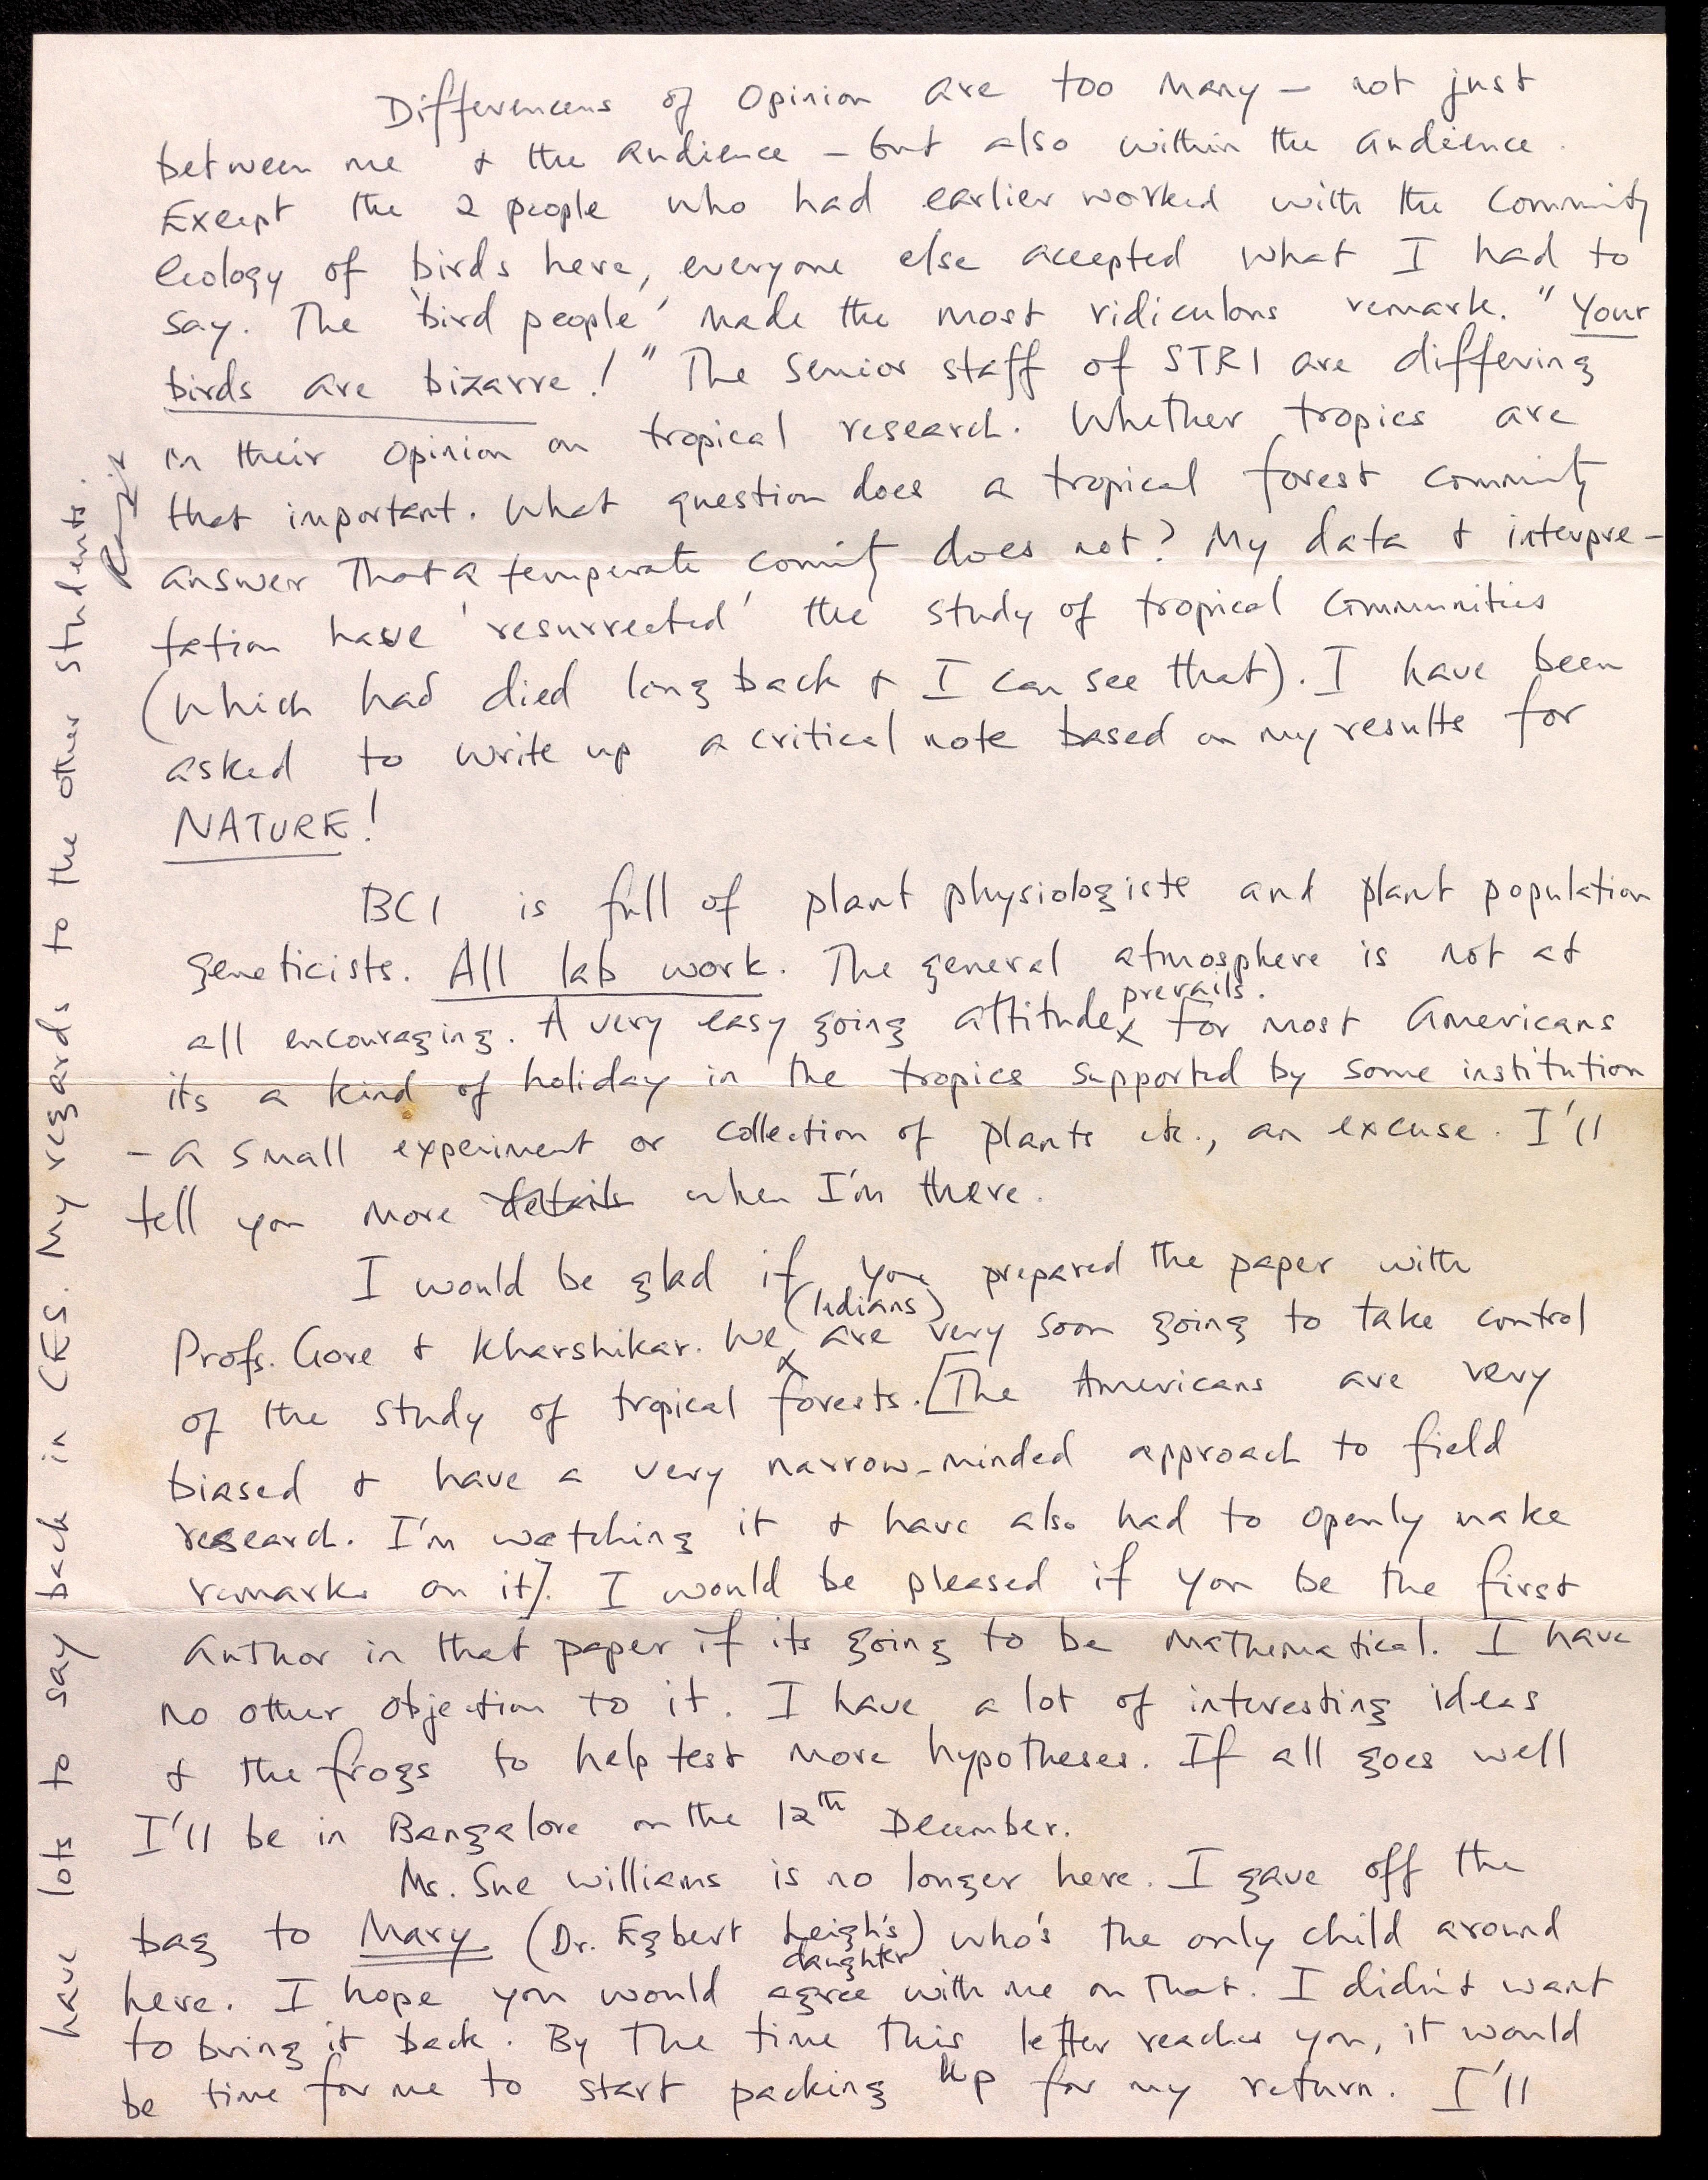 Differenceus of Opinion are too many – not just
between me & the audience – but also within the audience.
Except the 2 people who had earlier worked with the Commnity
Ecology of birds here, everyone else accepted what I had to
say. The 'bird people' made the most ridiculous remark. "Your
birds are bizarre!" The senior staff of STRI are differing
in their opinion on tropical research. Whether tropics are
that important. What question does a tropical forest commnity
answer that a temperate comnity does not? My data & interpre-
tation have 'resurrected' the study of tropical Communities
(which had died long back & I can see that). I have been
asked to write up a critical note based on my results for
NATURE!
BCI is full of plant physiologists and plant population
geneticists. All lab work. The general atmosphere is not at
prevails.
all encouraging. A very easy going attitude x For most Americans
its a kind of holiday in the tropics supported by some institution
– a small experiment or collection of plants etc., an excuse. I'll
tell you more details when I'm there.
I would be glad if you prepared the paper with
(Indians)
Profs. Gore & Kharshikar. We x are very soon going to take control
of the study of tropical forests. [The Americans are very
biased & have a very narrow-minded approach to field
research. I'm watching it & have also had to openly make
remarks on it]. I would be pleased if you be the first
author in that paper if its going to be mathematical. I have
no other objection to it. I have a lot of interesting ideas
& the frogs to help test more hypotheses. If all goes well
I'll be in Bangalore on the 12th December.
Ms. Sue Williams is no longer here. I gave off the
bag to Mary (Dr. Egbert Leigh's) who's the only child around
daughter
here. I hope you would agree with me on that. I didn't want
to bring it back. By the time this letter reaches you, it would
be time for me to start packing up for my return. I'll
have lots to say back in CES. My regards to the other students.
Ranjit